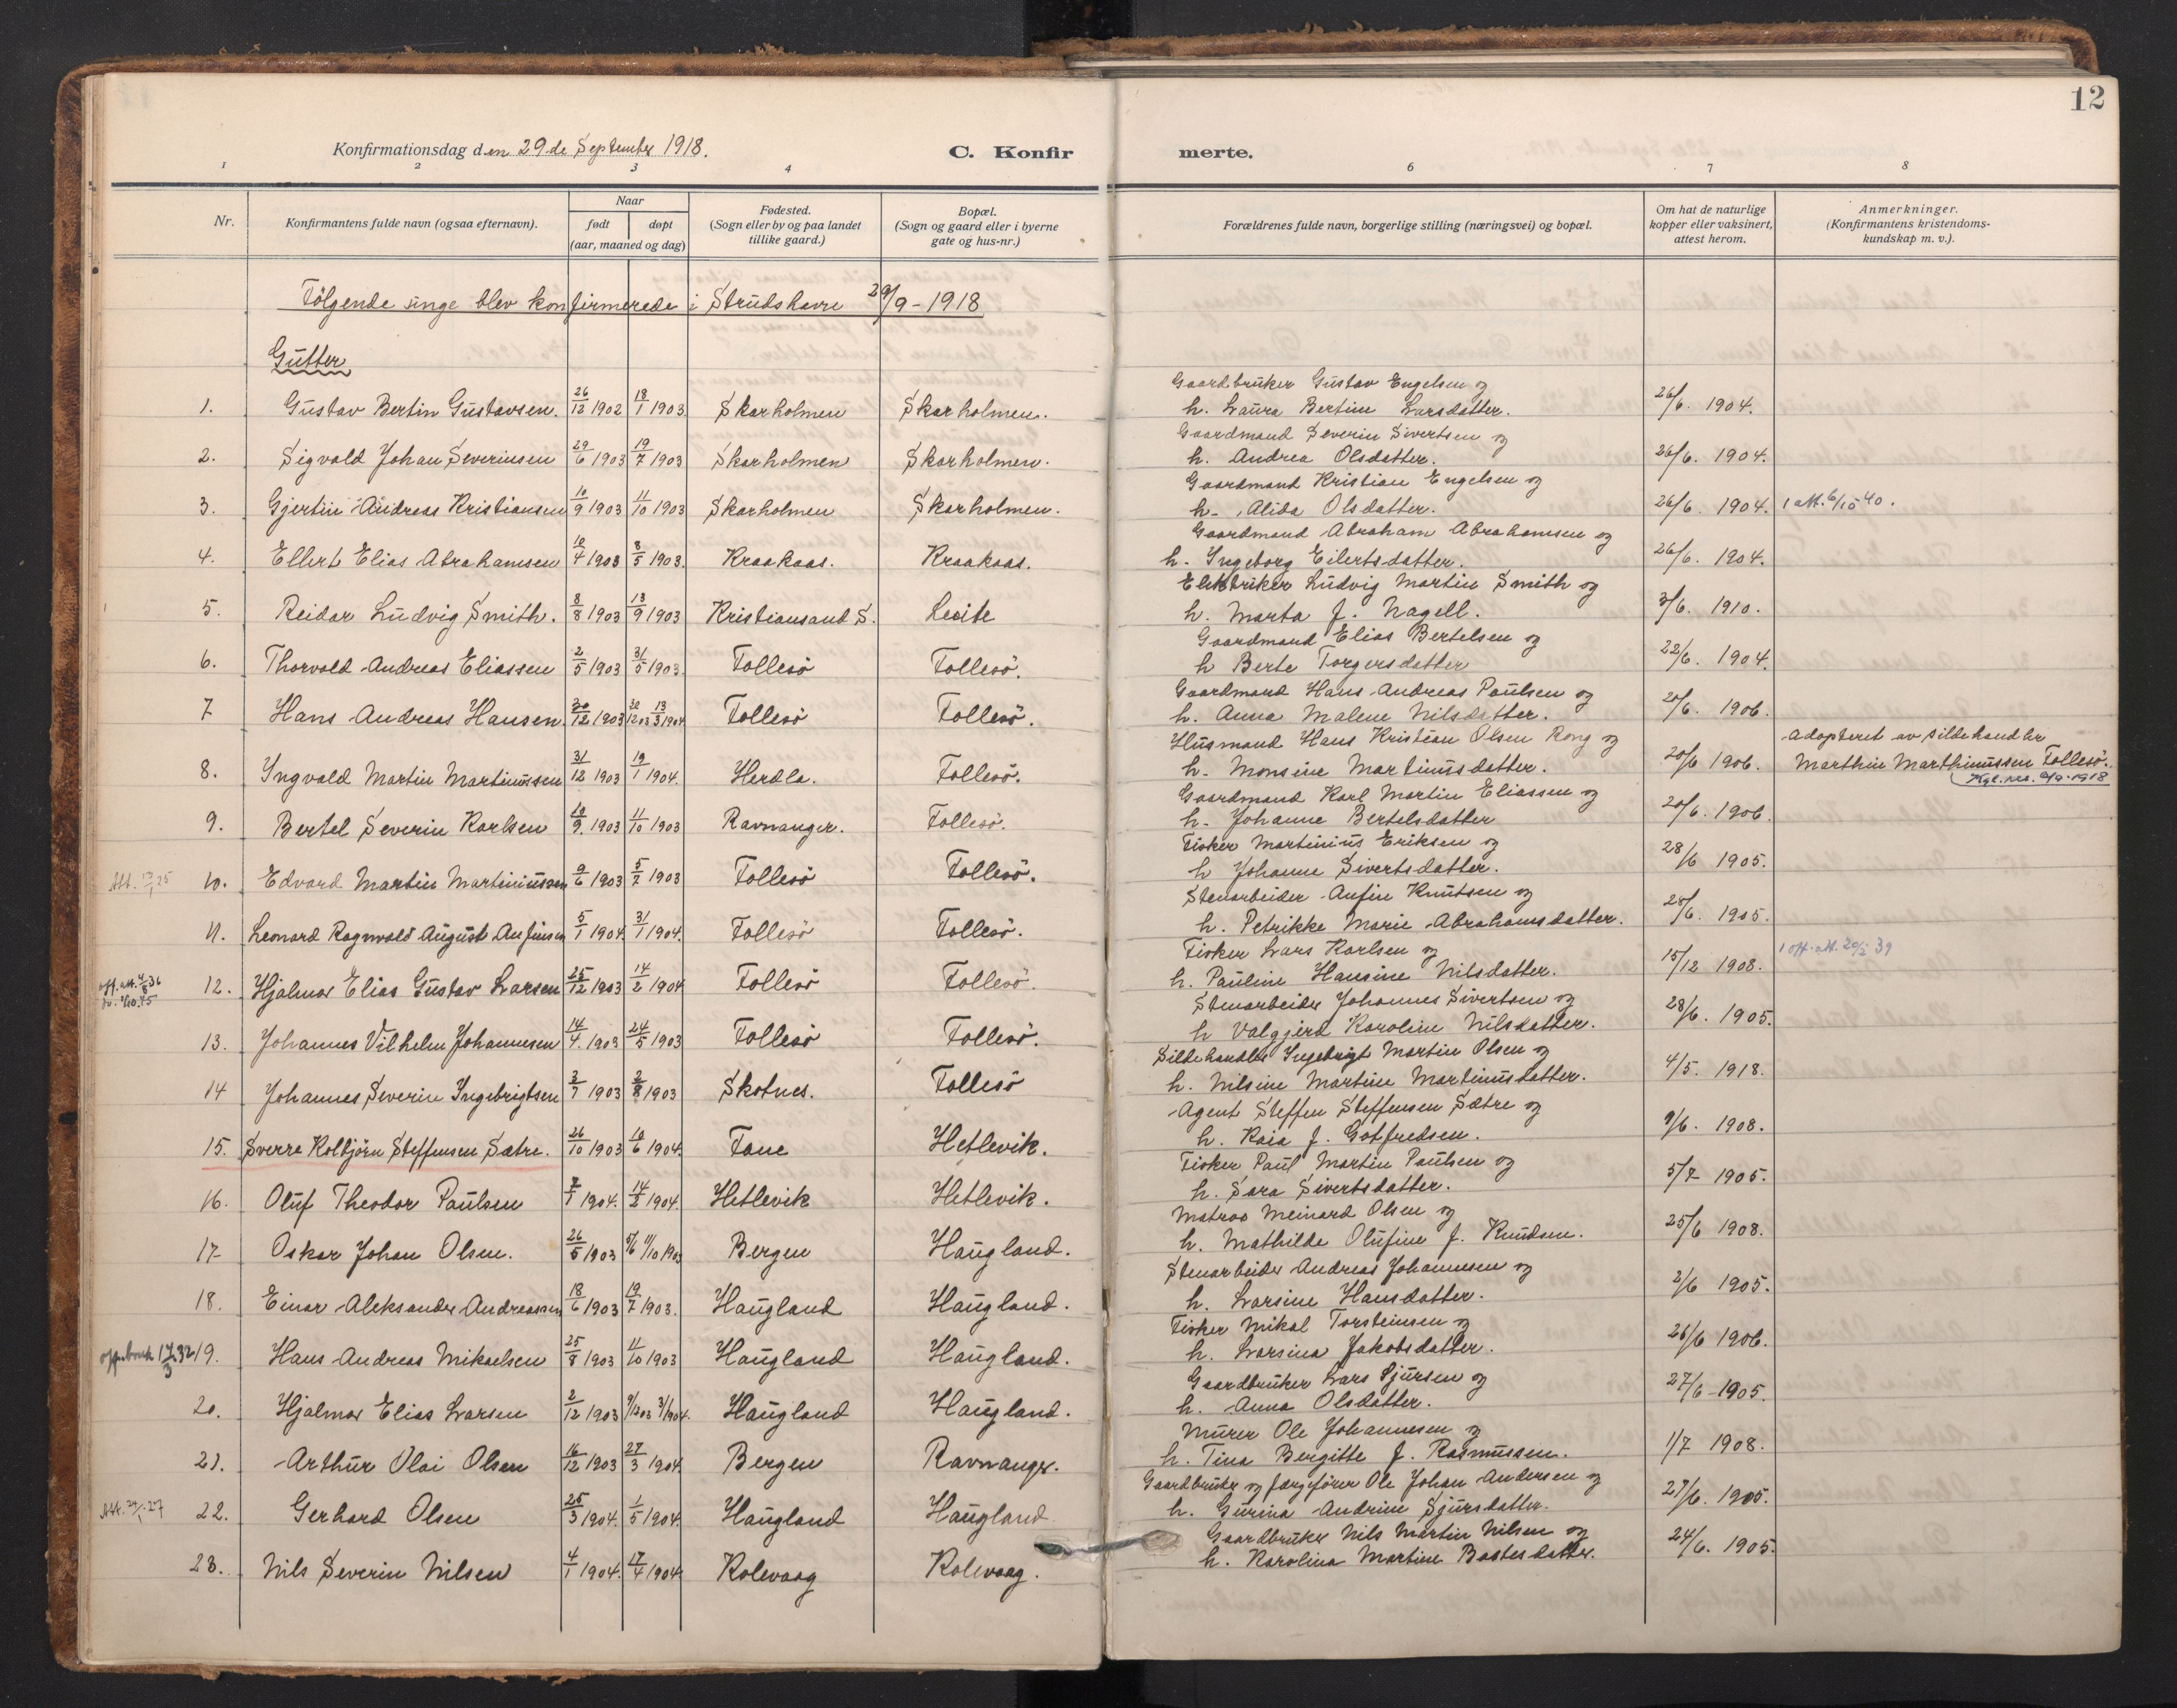 12
Konfirmationsdag den 29de September 1918.
C. Konfir merte.
1 2 3 4 6 7 8
Nr.
Konfirmantens fulde navn (ogsaa efternavn).
Naar
født døpt
(aar, maaned og dag)
Fødested.
(Sogn eller by og paa landet
tillike gaard.)
Bopæl.
(Sogn og gaard eller i byerne
gate og hus-nr.)
Forældrenes fulde navn, borgerlige stilling (næringsvei) og bopæl.
Om hat de naturlige
kopper eller vaksinert,
attest herom.
Anmerkninger.
(Konfirmantens kristendoms-
kundskap m. v.).
Følgende unge blev konfirmerede i Strudshavn 29/9-1918
Gutter
Gaardbruker Gustav Engelsen og
1. Gustav Bertin Gustavsen. 26/12 1902 18/1 1903 Skarholmen Skarholmen. h. Laura Bertine Larsdatter. 26/6. 1904.
Gaardmand Severin Sivertsen og
2. Sigvald Johan Severinsen 29/6 1903 19/7 1903 Skarholmen Skarholmen. h. Andrea Olsdatter. 26/6. 1904.
Gaardmand Kristian Engelsen og
3. Gjertin Andreas Kristiansen 10/9 1903 11/10 1903 Skarholmen Skarholmen. h. Alida Olsdatter. 26/6. 1904. 1 att. 6/10 40.
Gaardmand Abraham Abrahamsen og
4. Ellert Elias Abrahamsen 10/4 1903 8/5 1903. Kraakaas. Kraakaas. h. Ingeborg Eilertsdatter. 26/6. 1904.
Ludvig Martin Smith og
5. Reidar Ludvig Smith. 8/8 1903 13/9 1903 Kristiansand S. Leite h. Marta f. Nagell. 3/6. 1910.
Gaardmand Elias Bertelsen og
6. Thorvald Andreas Eliassen 2/5 1903 31/5 1903. Follesö Follesö. h Berte Torgersdatter 22/6. 1904.
Gaardmand Hans Andreas Paulsen og
7 Hans Andreas Hansen. 20/12 1903 13/3 1904 Follesö Follesö. h. Anna Malene Nilsdatter. 20/6. 1906.
Husmand Hans Kristian Olsen Rong og Adopteret av sildehandler
8. Ingvald Martin Martinussen 31/12 1903 19/1 1904. Herdla. Follesö. h. Monsine Martinusdatter. 20/6 1906. Marthin Marthinussen Follesö.
Kgl. res. 9/9-1918
Gaardmand Karl Martin Eliassen og
9. Bertel Severin Karlsen 10/9. 1903 11/10 1903 Ravnanger. Follesö. h. Johanne Bertelsdatter 20/6. 1906
Fisker Martinius Eriksen og
Att. 13/1 25 10. Edvard Martin Martiniussen 9/6 1903 5/7 1903 Follesö Follesö. h Johanne Sivertsdatter. 28/6 1905.
Stenarbeider Anfin Knutsen og
11. Leonard Ragnvald August Anfinsen 5/1 1904. 31/1 1904. Follesö Follesö. h. Petrikke Marie Abrahamsdatter. 25/6. 1905.
Fisker Lars Karlsen og 1 off. att. 20/2 39
off. att. 4/8 36 12. Hjalmar Elias Gustav Larsen 25/12 1903 14/2 1904 Follesö Follesö. h. Pauline Hansine Nilsdatter. 15/12 1908.
Stenarbeider Johannes Sivertsen og
13. Johannes Vilhelm Johannesen 14/4. 1903 24/5 1903 Follesö Follesö. h Valgjerd Karoline Nilsdatter. 28/6. 1905.
Sildehandler Ingebrigt Martin Olsen og
14 Johannes Severin Ingebrigtsen 3/7 1903 2/8 1903 Skotnes. Follesö h. Nilsine Martine Martinusdatter. 4/5. 1918.
Agent Steffen Steffensen Sætre og
15. Sverre Kolbjørn Steffensen Sætre. 26/10 1903 10/6 1904. Fane Hetlevik. h. Kaia f. Gotfredsen. 9/6. 1908.
Fisker Paul Martin Paulsen og
16. Oluf Theodor Paulsen 7/1 1904. 14/2 1904. Hetlevik Hetlevik. h. Sara Sivertsdatter. 5/7 1905.
Matros Meinard Olsen og
17 Oskar Johan Olsen. 26/5 1903 5/6 11/10 1903 Bergen Haugland. h. Mathilde Olufine f. Knudsen. 25/6 1908.
Stenarbeider Andreas Johannesen og
18. Einar Aleksander Andreassen 18/6 1903 19/7 1903. Haugland Haugland. h. Larsine Hansdatter. 2/6 1905.
Fisker Mikal Torsteinsen og
19. Hans Andreas Mikaelsen 25/8 1903 11/10 1903 Haugland Haugland. h. Larsina Jakobsdatter. 26/6 1906.
Gaardbruker Lars Sjursen og
20. Hjalmar Elias Larsen 2/12 1903 9/12 03 3/1 1904. Haugland Haugland. h. Anna Olsdatter. 27/6-1905.
Murer Ole Johannesen og
21. Arthur Olai Olsen 16/12 1903 27/3 1904. Bergen Ravnanger. h. Tina Bergitte f. Rasmussen. 1/7 1908.
Gaardbruker og færgefører Ole Johan Andersen og
Att. 24/1-27 22. Gerhard Olsen 25/3 1904. 1/5 1904. Haugland Haugland h. Gurina Andrine Sjursdatter. 27/6. 1905.
Gaardbruker Nils Martin Nilsen og
23. Nils Severin Nilsen 4/1 1904. 17/4 1904 Kolevaag Kolevaag. h. Karolina Martine Bastesdatter. 24/6. 1905.